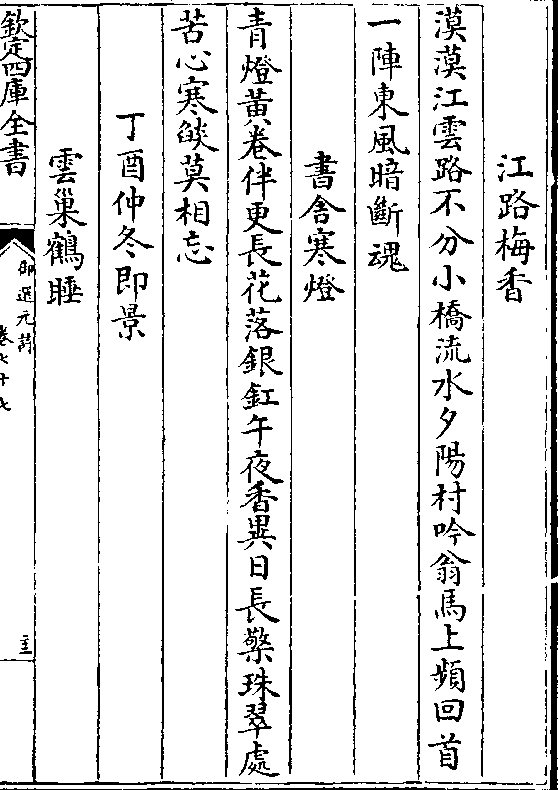 江路梅香
漠漠江雲路不分小橋流水夕陽村吟翁馬上頻回首
一陣東風暗斷魂
書舎寒燈
青燈黃卷伴更長花落銀釭午夜香異日長檠珠翠處
苦心寒燄莫相忘
丁酉仲冬即景
雲巢鶴睡
欽定四庫全書
御選元詩
卷七十七